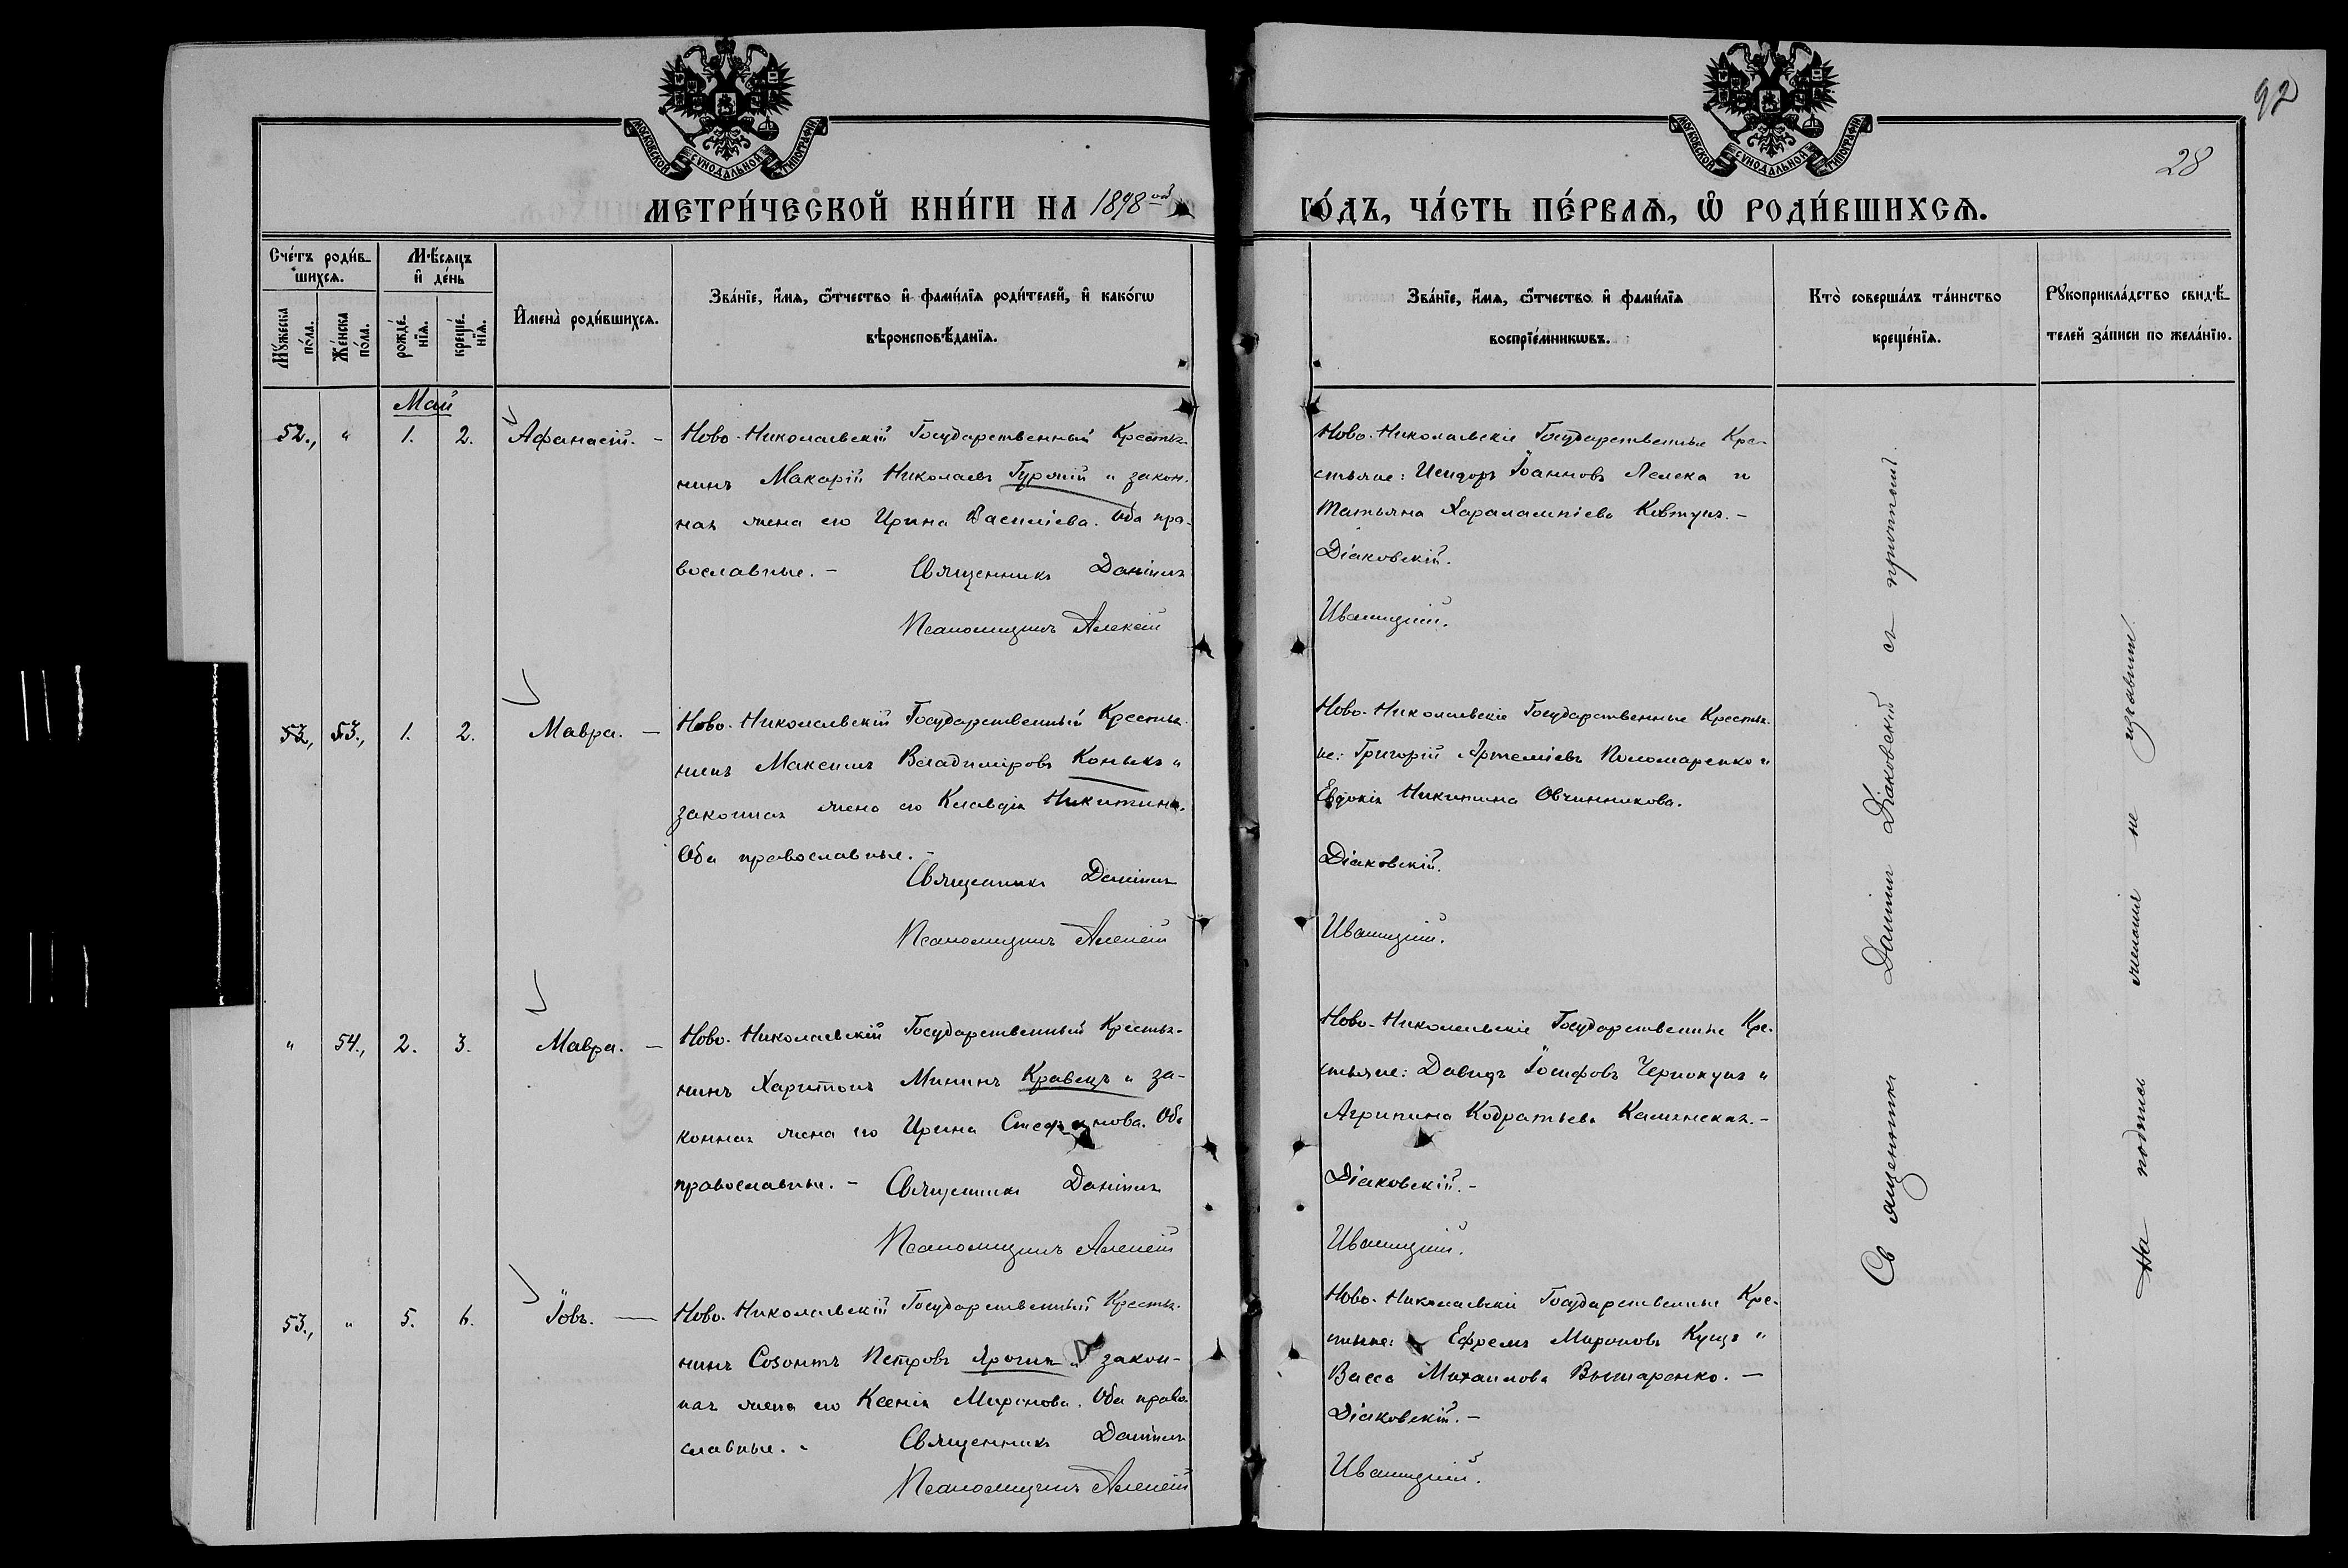 92
28
МОСКОВСКОЙ СѴНОДАЛЬНОЙ ТИПОГРАФІИ
МОСКОВСКОЙ СѴНОДАЛЬНОЙ ТИПОГРАФІИ
МЕТРИ́ЧЕСКОЙ КНИ́ГИ НА 1898ой
ГО́ДЪ, ЧА́СТЬ ПЕ́РВАѦ, Ѽ РОДИ́ВШИХСѦ.
Сче́тъ роди́в-
шихсѧ.
Мѣ́сѧцъ
и҆ де́нь
Мꙋ́жеска по́ла.
Же́нска по́ла.
рожде́-
нїѧ.
креще́-
нїѧ.
И҆мена̀ роди́вшихсѧ.
Зва́нїе, и҆́мѧ, ѻ҆́тчество и҆ фами́лїѧ роди́телей, и҆ како́гѡ
вѣроисповѣ́данїѧ.
Зва́нїе, и҆́мѧ, ѻ҆́тчество и҆ фами́лїѧ
воспрїе́мникѡвъ.
Кто̀ соверша́лъ та́инство
креще́нїѧ.
Рꙋкоприкла́дство свидѣ́-
телей за́писи по жела́нїю.
Май
52., " 1. 2. Афанасій. -
Ново-Николаевскій Государственный Крестья-
нинъ Макарій Николаевъ Гурскій и закон-
ная жена его Ирина Василіева. Оба пра-
вославные. - Священникъ Даніилъ
Псаломщикъ Алексій
Ново-Николаевскіе Государственные Кре-
стьяне: Исидоръ Іоанновъ Лелека и
Татьяна Харалампіева Ковтунъ. -
Діаковскій.
Иваницкій.
53., 1. 2. Мавра. -
Ново-Николаевскій Государственный Крестья-
нинъ Максимъ Владиміровъ Конькъ и
законная жена его Клавдія Никитина.
Оба православные. -
Священникъ Даніилъ
Псаломщикъ Алексій
Ново-Николаевскіе Государственные Крестья-
не: Григорій Артеміевъ Пономаренко и
Евдокія Никитина Овчинникова.
Діаковскій.
Иваницкій.
" 54., 2. 3. Мавра. -
Ново-Николаевскій Государственный Крестья-
нинъ Харитонъ Мининъ Кравецъ и за-
конная жена его Ирина Стефанова. Оба
православные. - Священникъ Даніилъ
Псаломщикъ Алексій
Ново-Николаевскіе Государственные Кре-
стьяне: Давидъ Іосифовъ Чернокунъ и
Агрипина Кодратьева Каминская. -
Діаковскій. -
Иваницкій.
53., " 5. 6. Іовъ. -
Ново-Николаевскій Государственный Крестья-
нинъ Созонтъ Петровъ и закон-
ная жена его Ксенія Миронова. Оба право-
славные. - Священникъ Даніилъ
Псаломщикъ Алексій
Ново-Николаевскіе Государственные Кре-
стьяне: Ефремъ Мироновъ Куцъ и
Васса Михаилова -
Діаковскій. -
Иваницкій.
Священникъ Даніилъ Діаковскій съ причтомъ.
На подпись желанія не изъявили.